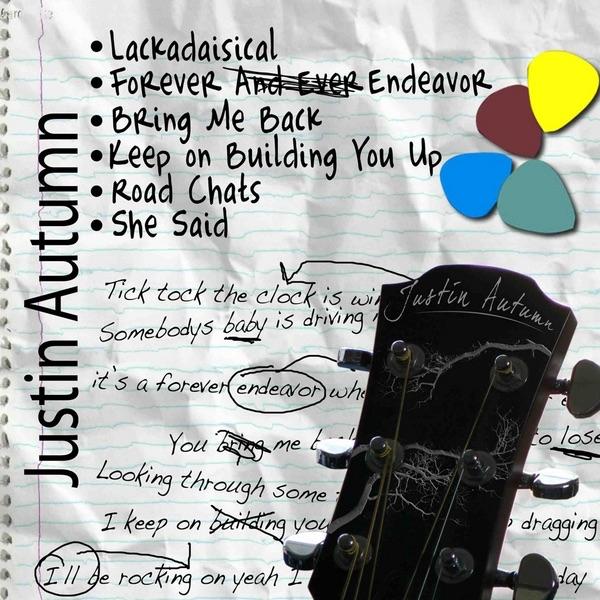 Justin Autumn
• Lackadaisical
• Forever And Ever Endeavor
• Bring Me Back
• Keep on Building You Up
• Road Chats
• She Said
Tick tock the clock is
Justin Autumn
Somebodys baby is driving
it's a forever endeavor
You bring me to lose
Looking through some
I keep on building you dragging
I'll be rocking on yeah I day